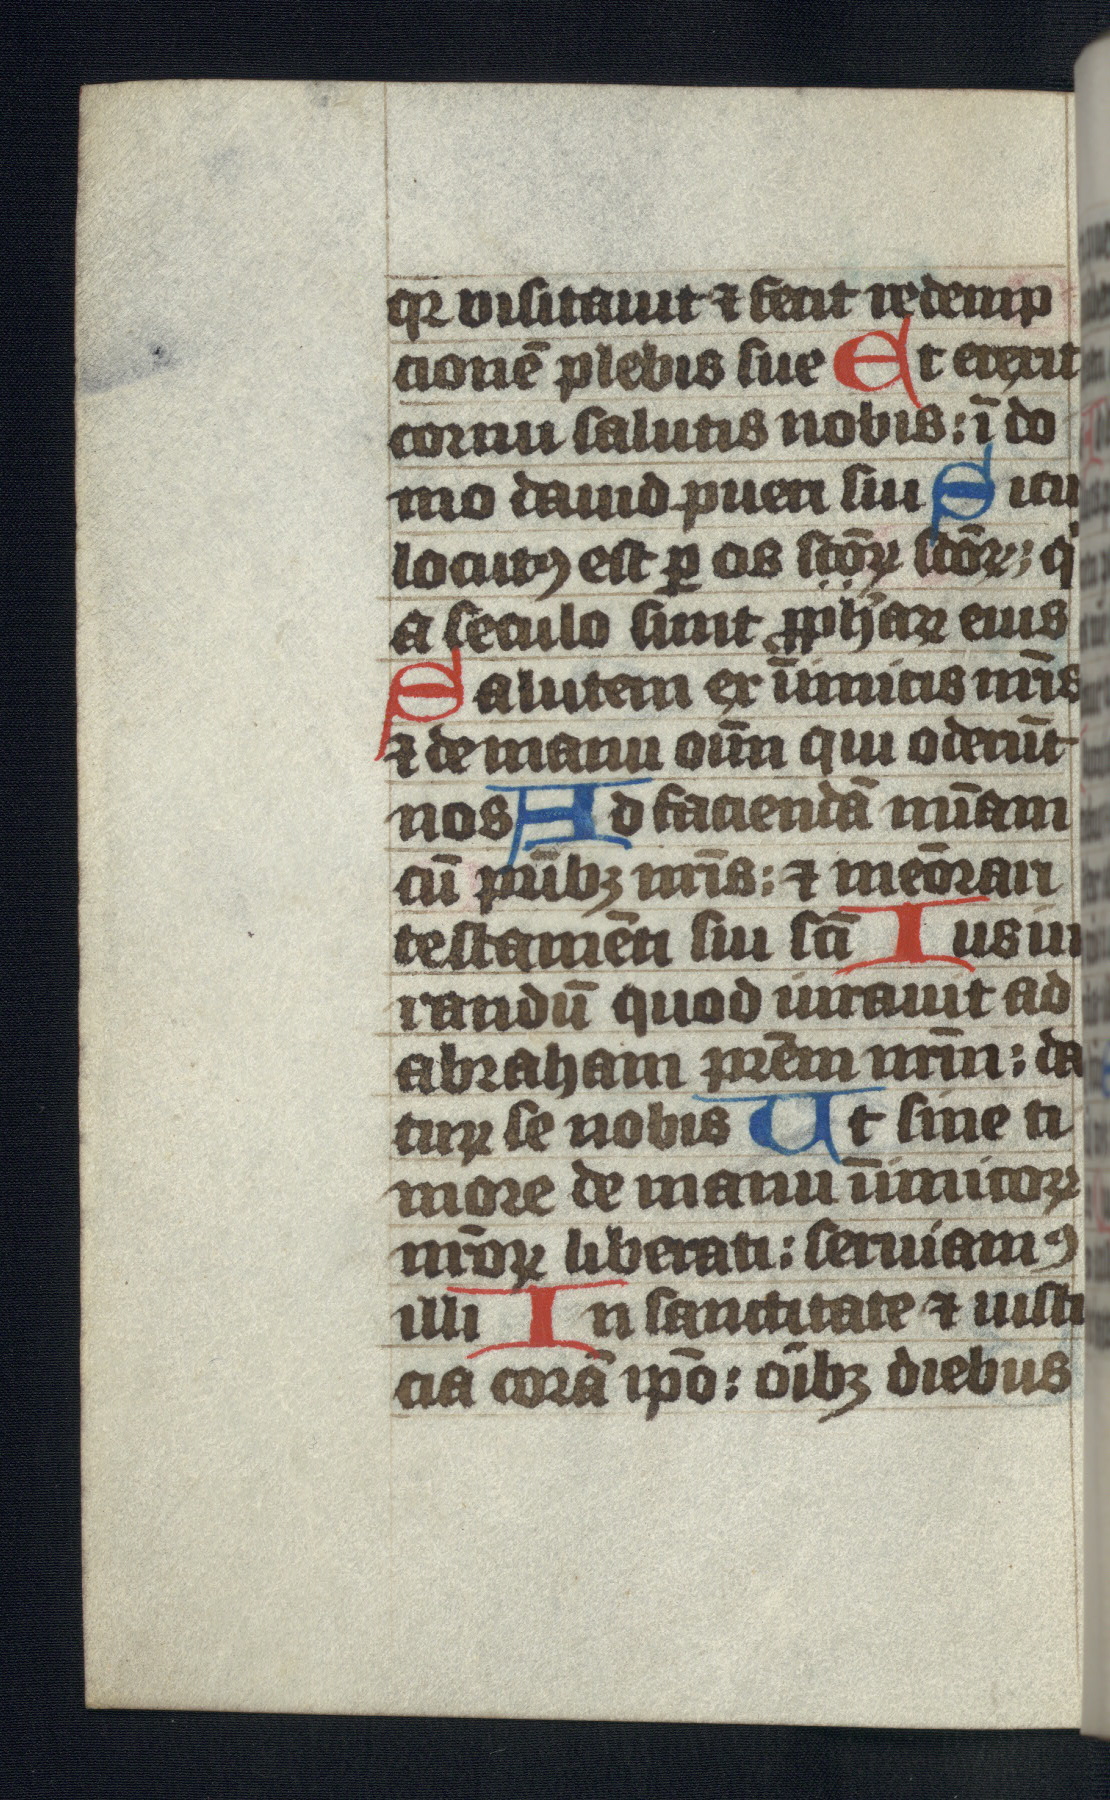 qꝛ visitauit ⁊ fecit redemp
cionē plebis sue Et erexit
cornu salutis nobis: ī do
mo dauid pueri sui Sicu
locutꝰ est ꝑ os sc̄oꝝ sc̄oꝝ; q
a seculo sunt ꝓph̄aꝝ eius
Salutem ex īimicis nr̄is
⁊ de manu oīm qui oderūt
nos Ad faciendā mīam
cū prībꝫ nr̄is: ⁊ meōrari
testamēti sui sc̄i Iusiu
randū quod iurauit ad
abraham pr̄em nr̄m: da
turꝝ se nobis Ut sine ti
more de manu īimicoꝝ
nr̄oꝝ liberati: seruiamꝰ
illi In sanctitate ⁊ iusti
cia corā ipō: oībꝫ diebus